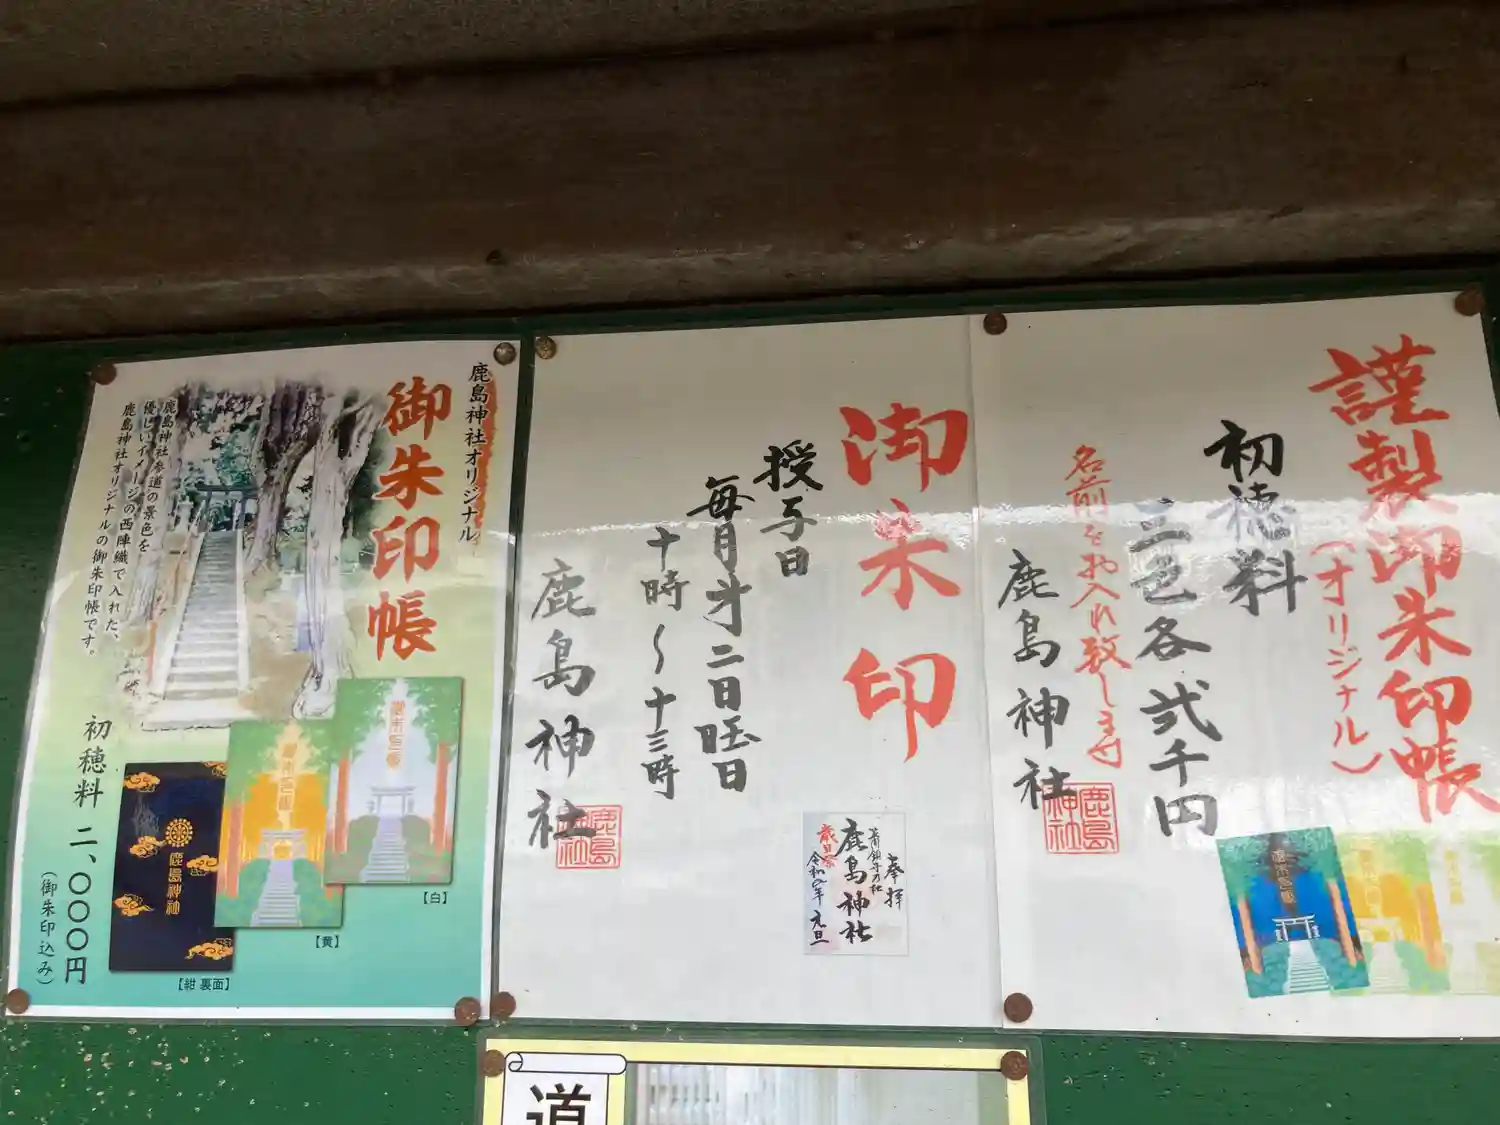 謹製御朱印帳
(オリジナル)
初穂料
三色各弐千円
名前をお入れ致します
鹿島神社
鹿島神社
御朱印
授与日
毎月第二日曜日
十時～十三時
鹿島神社
鹿島神社
奉拝
鹿島神社
歳旦祭
元旦
鹿島神社オリジナル
御朱印帳
鹿島神社参道の景色を
優しいイメージの西陣織で入れた、
鹿島神社オリジナルの御朱印帳です。
初穂料 二、〇〇〇円
(御朱印込み)
【白】
【黄】
【紺 裏面】
鹿島神社
道